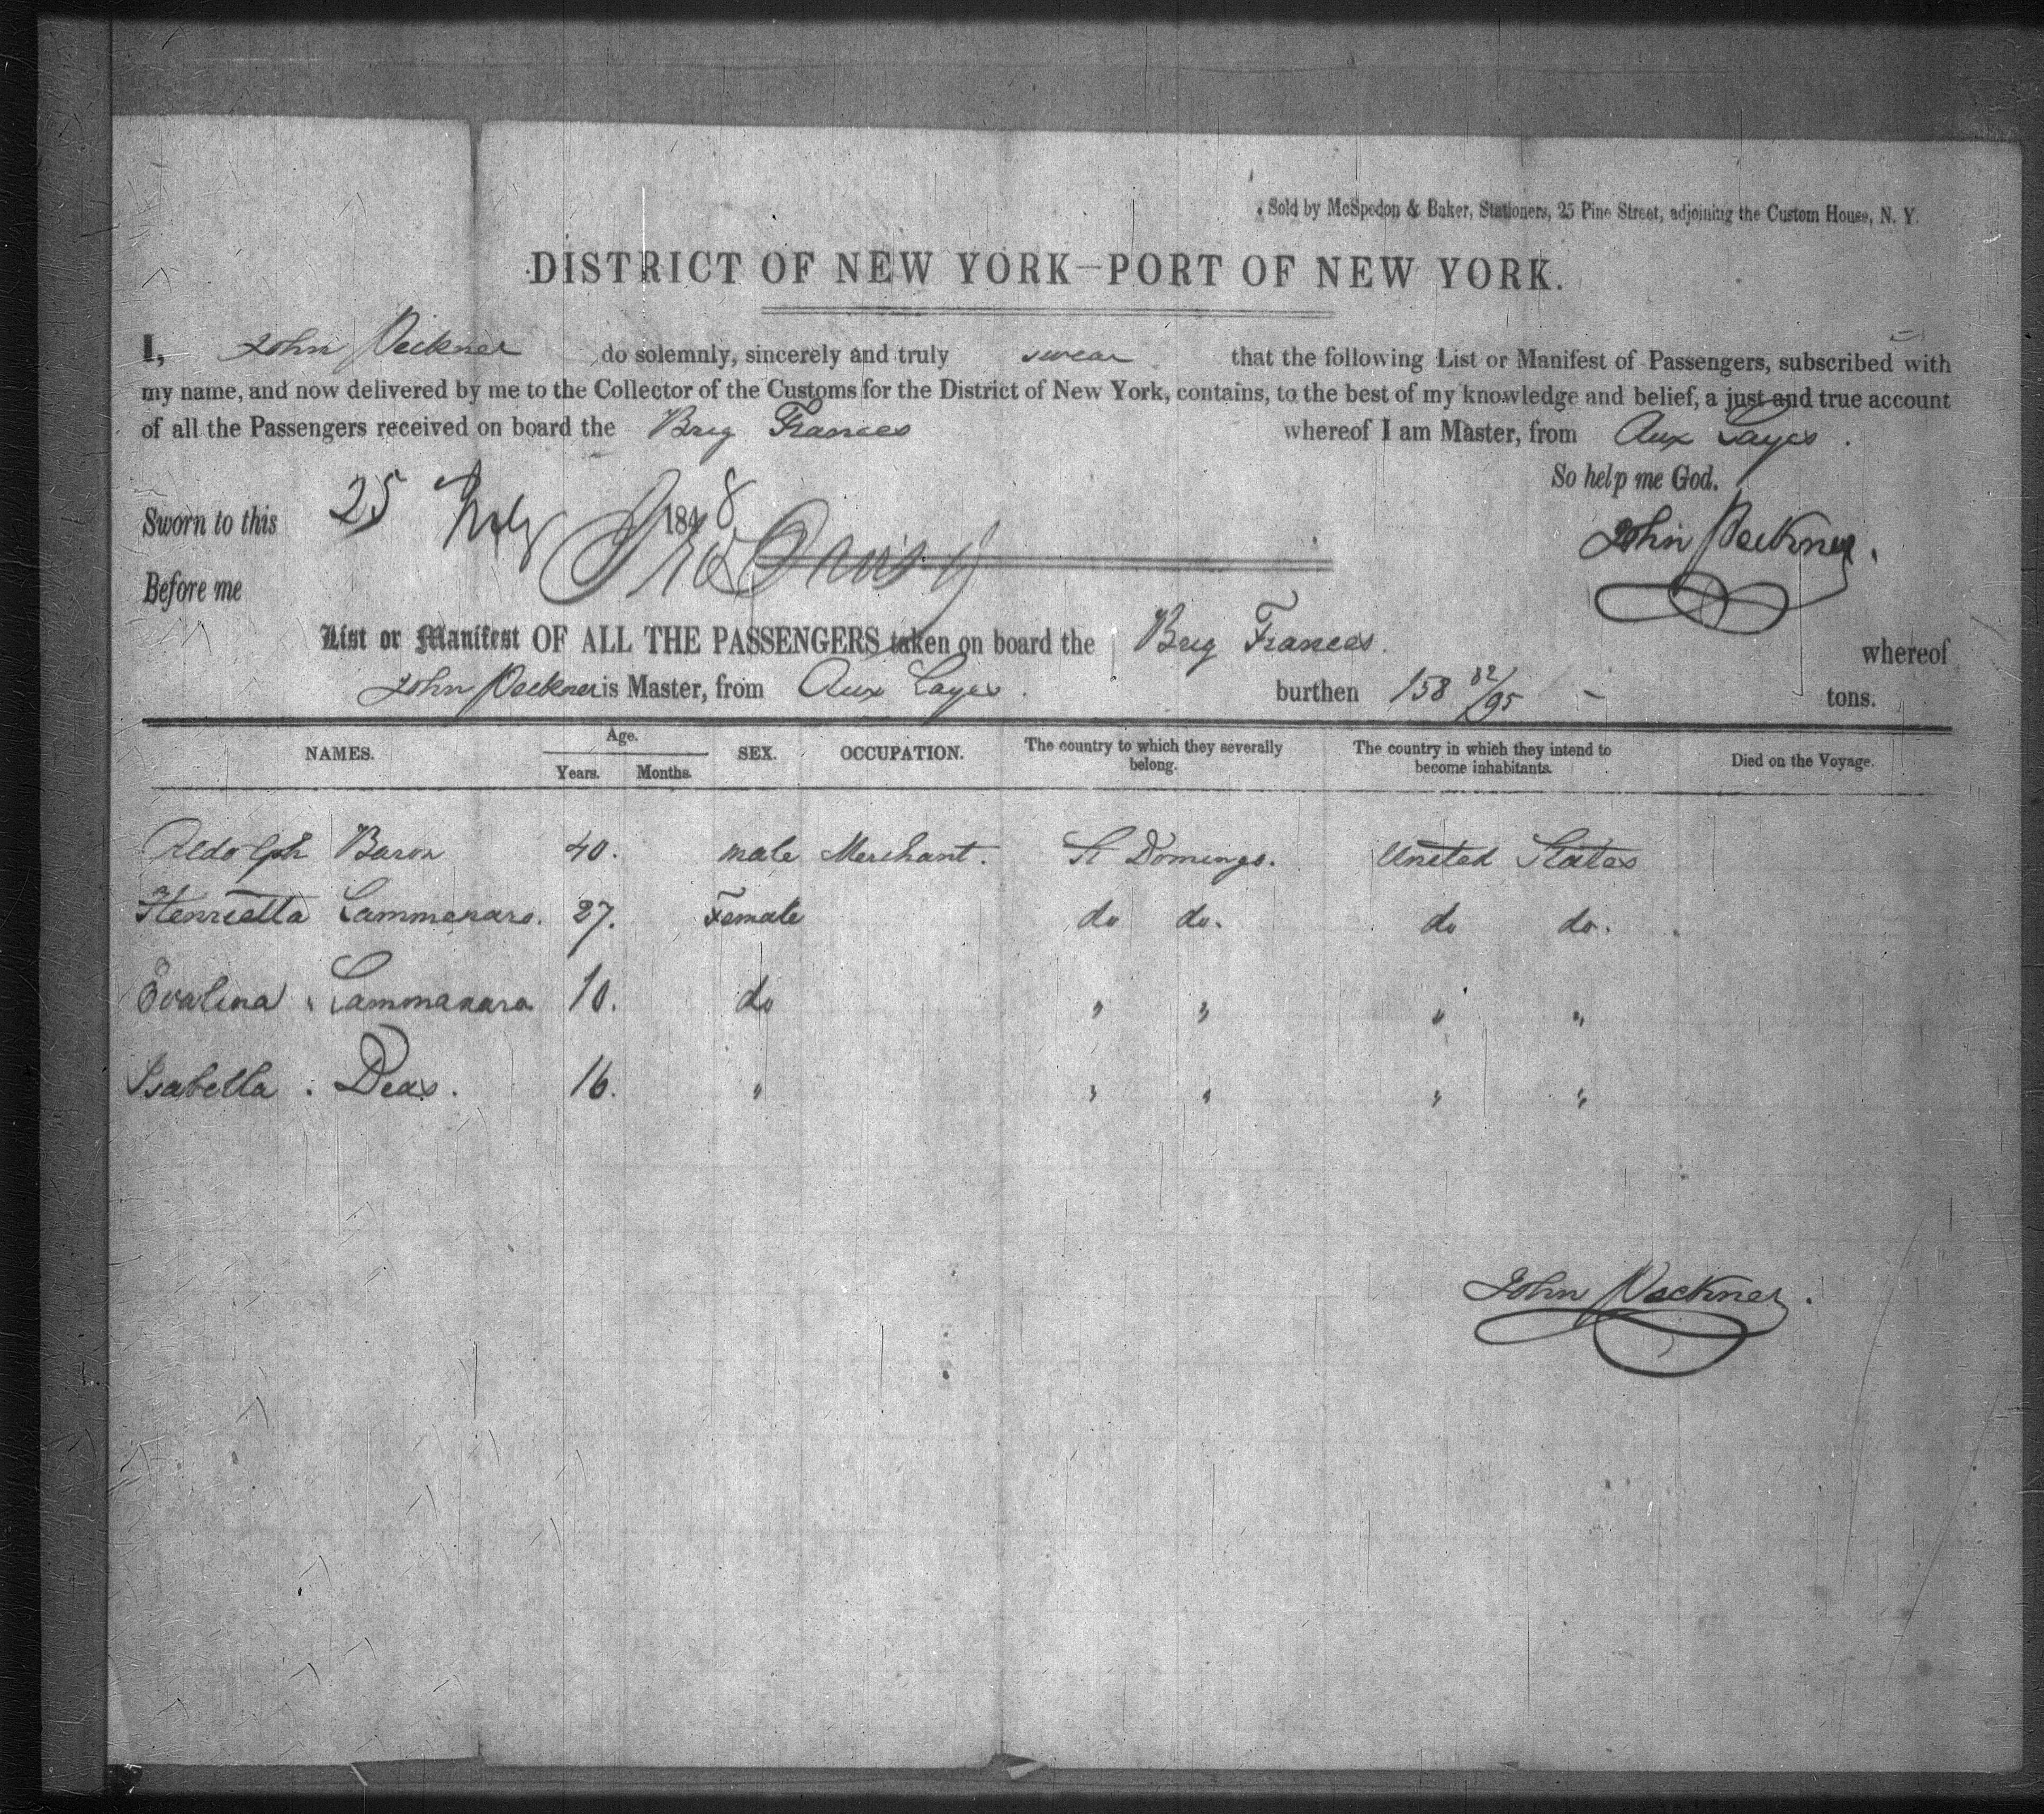 Sold by McSpedon & Baker, Stationers, 25 Pine Street, adjoining the Custom House, N. Y.
DISTRICT OF NEW YORK—PORT OF NEW YORK.
I, John Peckner do solemnly, sincerely and truly swear that the following List or Manifest of Passengers, subscribed with
my name, and now delivered by me to the Collector of the Customs for the District of New York, contains, to the best of my knowledge and belief, a just and true account
of all the Passengers received on board the Brig Frances whereof I am Master, from Aux Cayes.
So help me God.
Sworn to this 25 1848
John Peckner.
Before me
List or Manifest OF ALL THE PASSENGERS taken on board the Brig Frances. whereof
John Peckner is Master, from Aux Cayes. burthen 158 82/95 tons.
NAMES. Age. Years. Months. SEX. OCCUPATION. The country to which they severally belong. The country in which they intend to become inhabitants. Died on the Voyage.
Aldolph Baron 40. male Merchant. St Domingo. United States
Henrietta Lammanara. 27. Female do do. do do.
Evalina Lammanara 10. do " " " "
Isabella Deas. 16. " " " " "
John Peckner.